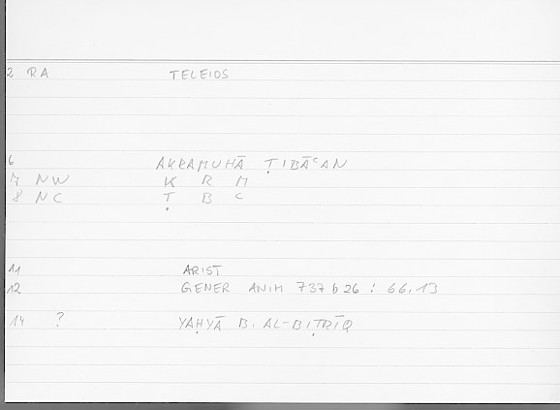 2 RA TELEIOS
6 AKRAMUHĀ ṬIBĀᶜAN
7 NW K R M
8 NC Ṭ B ᶜ
11 ARIST
12 GENER ANIM 737 b 26 : 66,13
14 ? YAḤYĀ B. AL-BIṬRĪQ